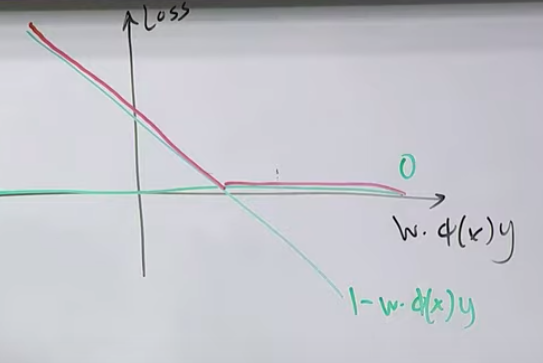 Loss
0
w·ϕ(x)y
1-w·ϕ(x)y